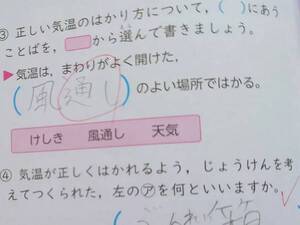 ③ 正しい気温のはかり方について,( )にあう
ことばを, から選んで書きましょう。
▶気温は,まわりがよく開けた,
(風通し)のよい場所ではかる。
けしき 風通し 天気
④ 気温が正しくはかれるよう,じょうけんを考
えてつくられた,左の㋐を何といいますか。